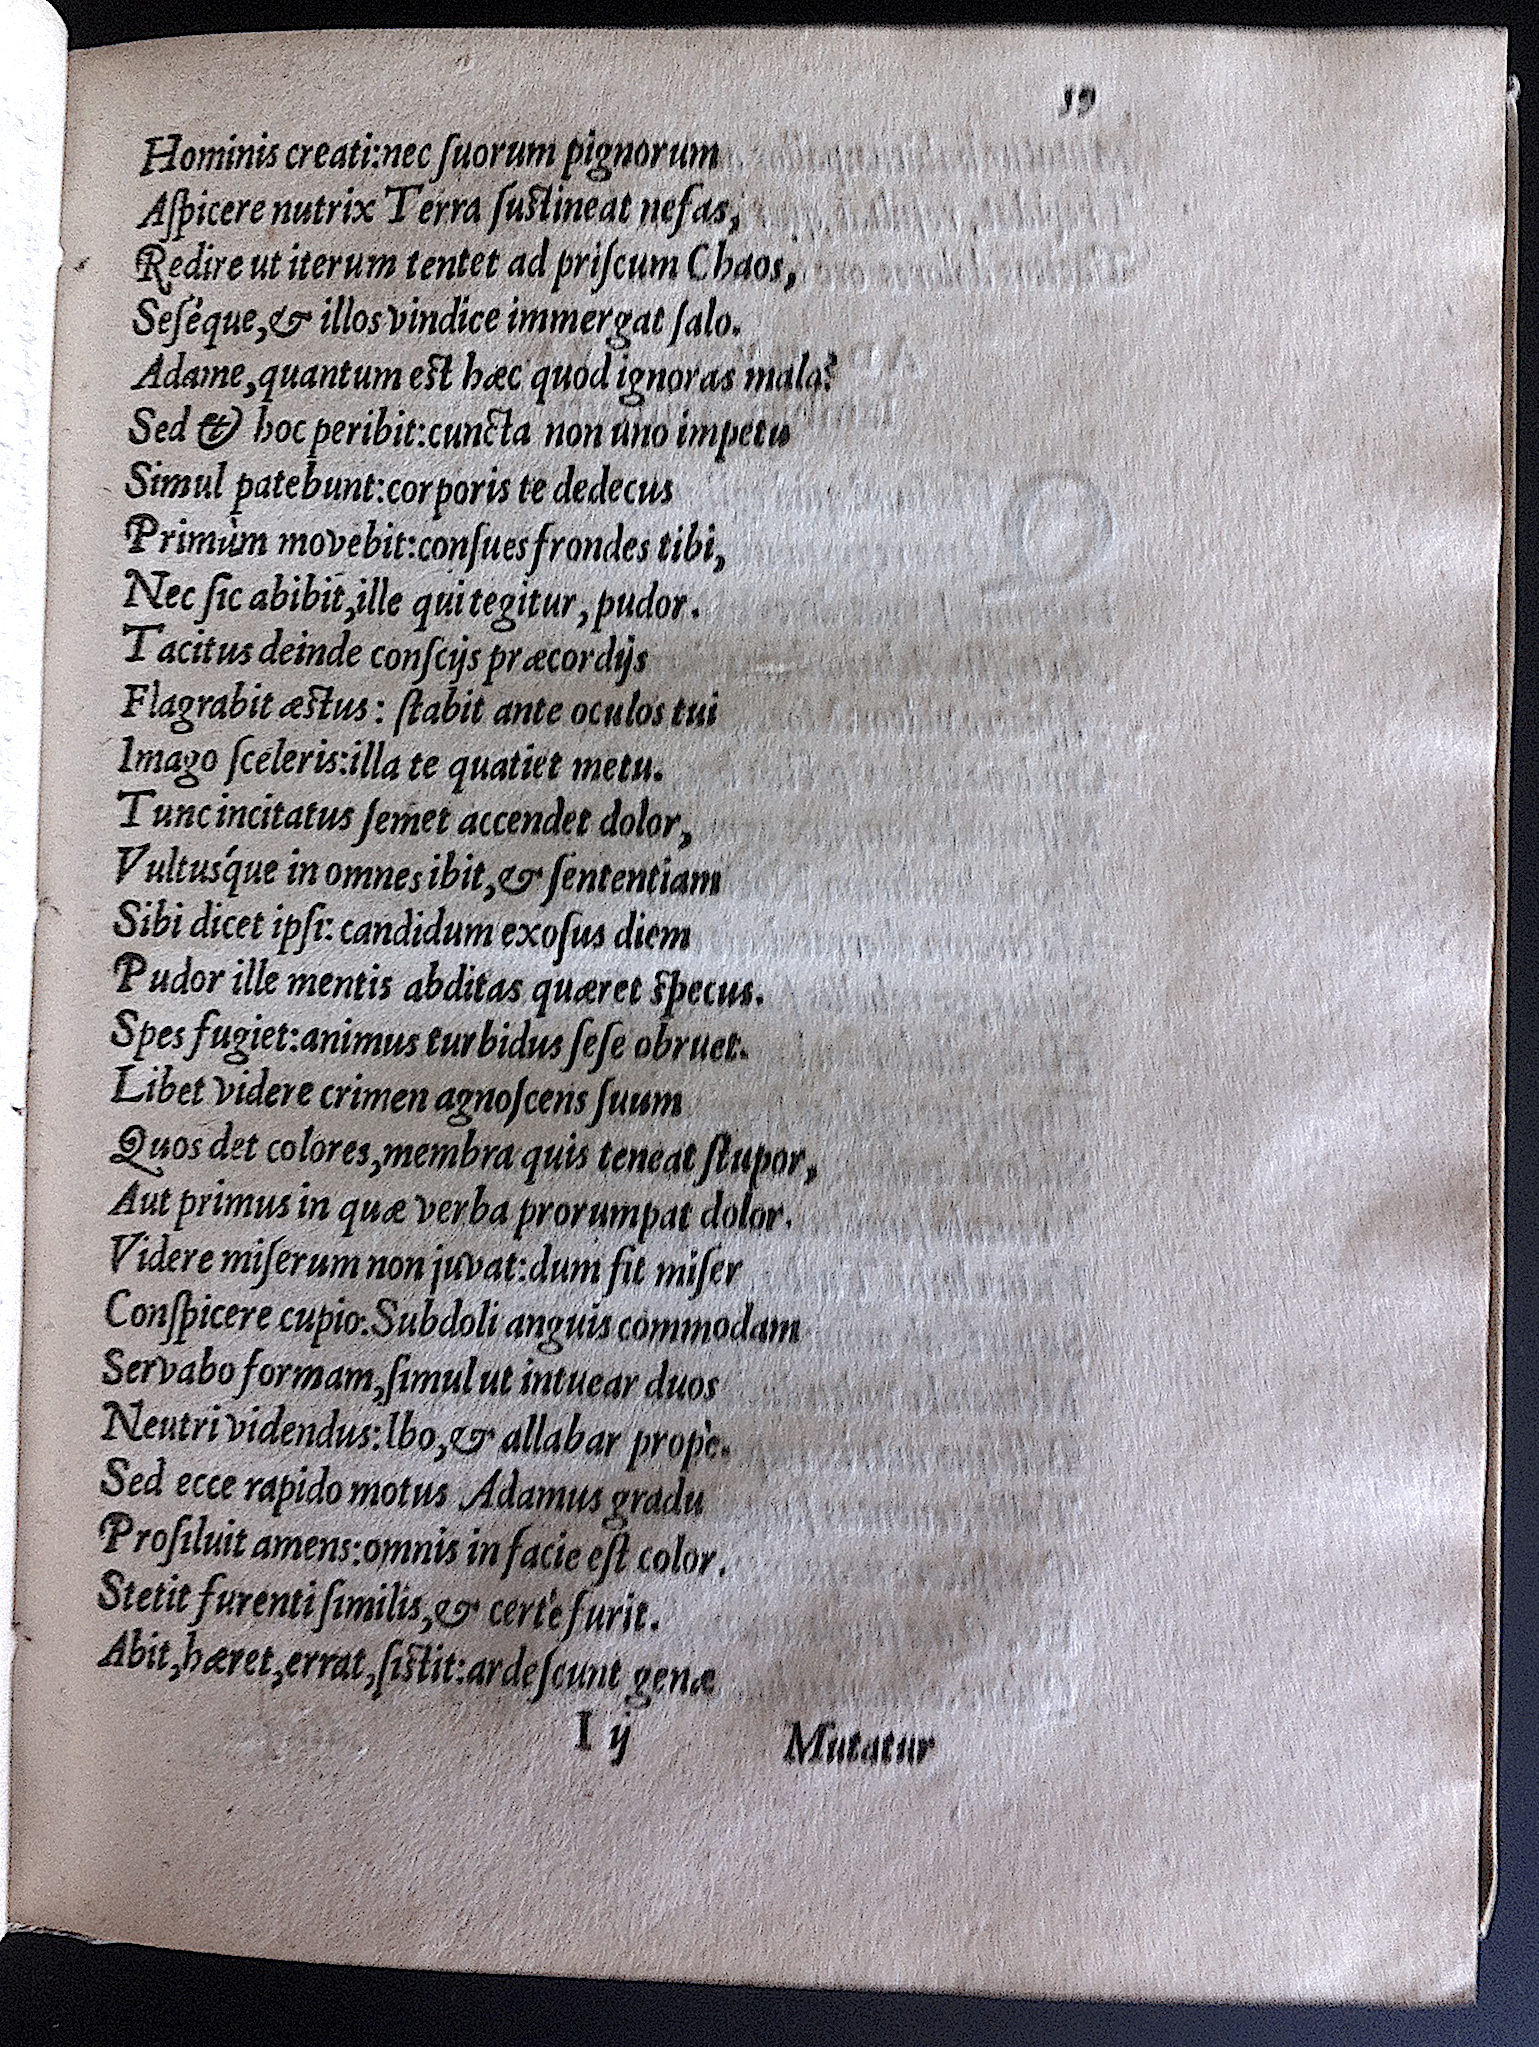 59
Hominis creati:nec ſuorum pignorum
Aſpicere nutrix Terra ſuſtineat nefas,
Redire ut iterum tentet ad priſcum Chaos,
Seſéque,& illos vindice immergat ſalo.
Adame,quantum eſt hæc quod ignoras mala?
Sed & hoc peribit:cuncta non uno impetu
Simul patebunt:corporis te dedecus
Primùm movebit:conſues frondes tibi,
Nec ſic abibit,ille qui tegitur, pudor.
Tacitus deinde conſcijs præcordijs
Flagrabit æſtus: ſtabit ante oculos tui
Imago ſceleris:illa te quatiet metu.
Tunc incitatus ſemet accendet dolor,
Vultusq́ue in omnes ibit,& ſententiam
Sibi dicet ipſi: candidum exoſus diem
Pudor ille mentis abditas quæret ſpecus.
Spes fugiet:animus turbidus ſeſe obruet.
Libet videre crimen agnoſcens ſuum
Quos det colores,membra quis teneat ſtupor,
Aut primus in quæ verba prorumpat dolor.
Videre miſerum non juvat:dum fit miſer
Conſpicere cupio.Subdoli anguis commodam
Servabo formam,ſimul ut intuear duos
Neutri videndus:Ibo,& allabar propè.
Sed ecce rapido motus Adamus gradu
Proſiluit amens:omnis in facie eſt color.
Stetit furenti ſimilis,& certè furit.
Abit,hæret,errat,ſiſtit:ardeſcunt genæ
I ij Mutatur